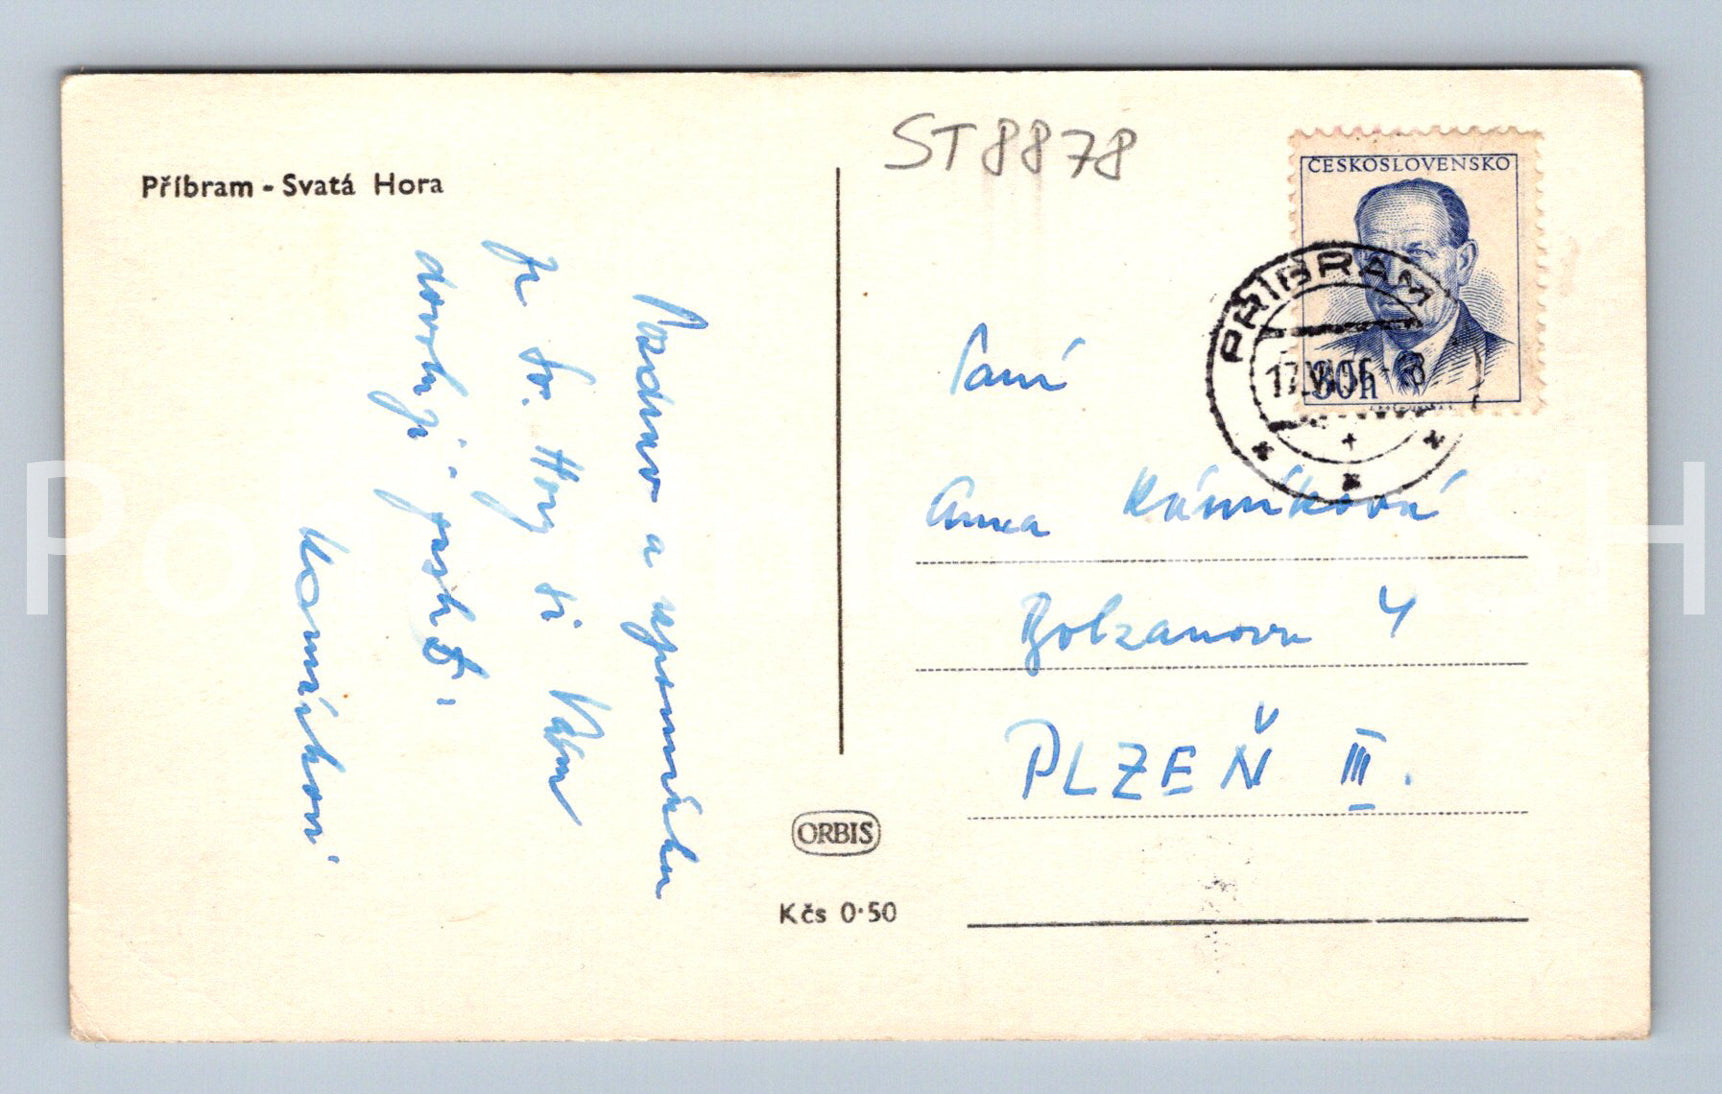 Příbram - Svatá Hora
ST8878
ČESKOSLOVENSKO
PŘÍBRAM
30h
Pozdrav a vzpomínku
ze Sv. Hory si Vám
dovolují poslat
Paní
Anna
Bolzanova 4
PLZEŇ III.
ORBIS
Kčs 0·50